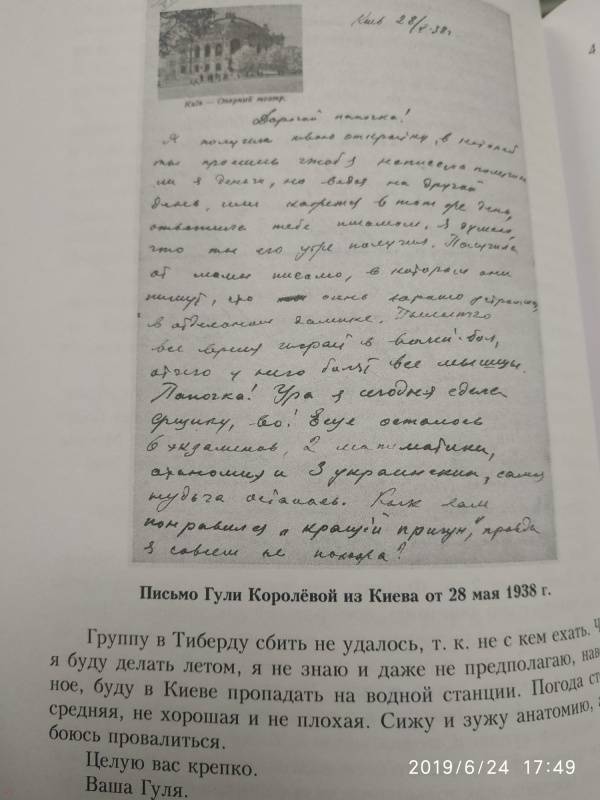 Київ 28/V-38г.
Київ — Оперний театр.
Дорогой папочка!
Я получила твою открытку, в которой
ты просишь чтоб я написала получила
ли я деньги, но ведь на другой
день, или кажется в тот же день,
ответила тебе письмом. Я думаю,
что ты его уже получил. Получила
от мамы письмо, в котором они
пишут, что очень хорошо устроились
в отдельном домике.
все время играй в волей-бол,
отчего у него болят все мышцы.
Папочка! Ура я сегодня сдала
Еще осталось
6 экзаменов, 2 математики,
анатомия и 3 украинских, самая
нудьга осталась. Как вам
понравился „кращий прыгун," правда
я совсем не похожа?
Письмо Гули Королёвой из Киева от 28 мая 1938 г.
Группу в Тиберду сбить не удалось, т. к. не с кем ехать.
я буду делать летом, я не знаю и даже не предполагаю,
ное, буду в Киеве пропадать на водной станции. Погода
средняя, не хорошая и не плохая. Сижу и зужу анатомию,
боюсь провалиться.
Целую вас крепко.
Ваша Гуля.
2019/6/24 17:49